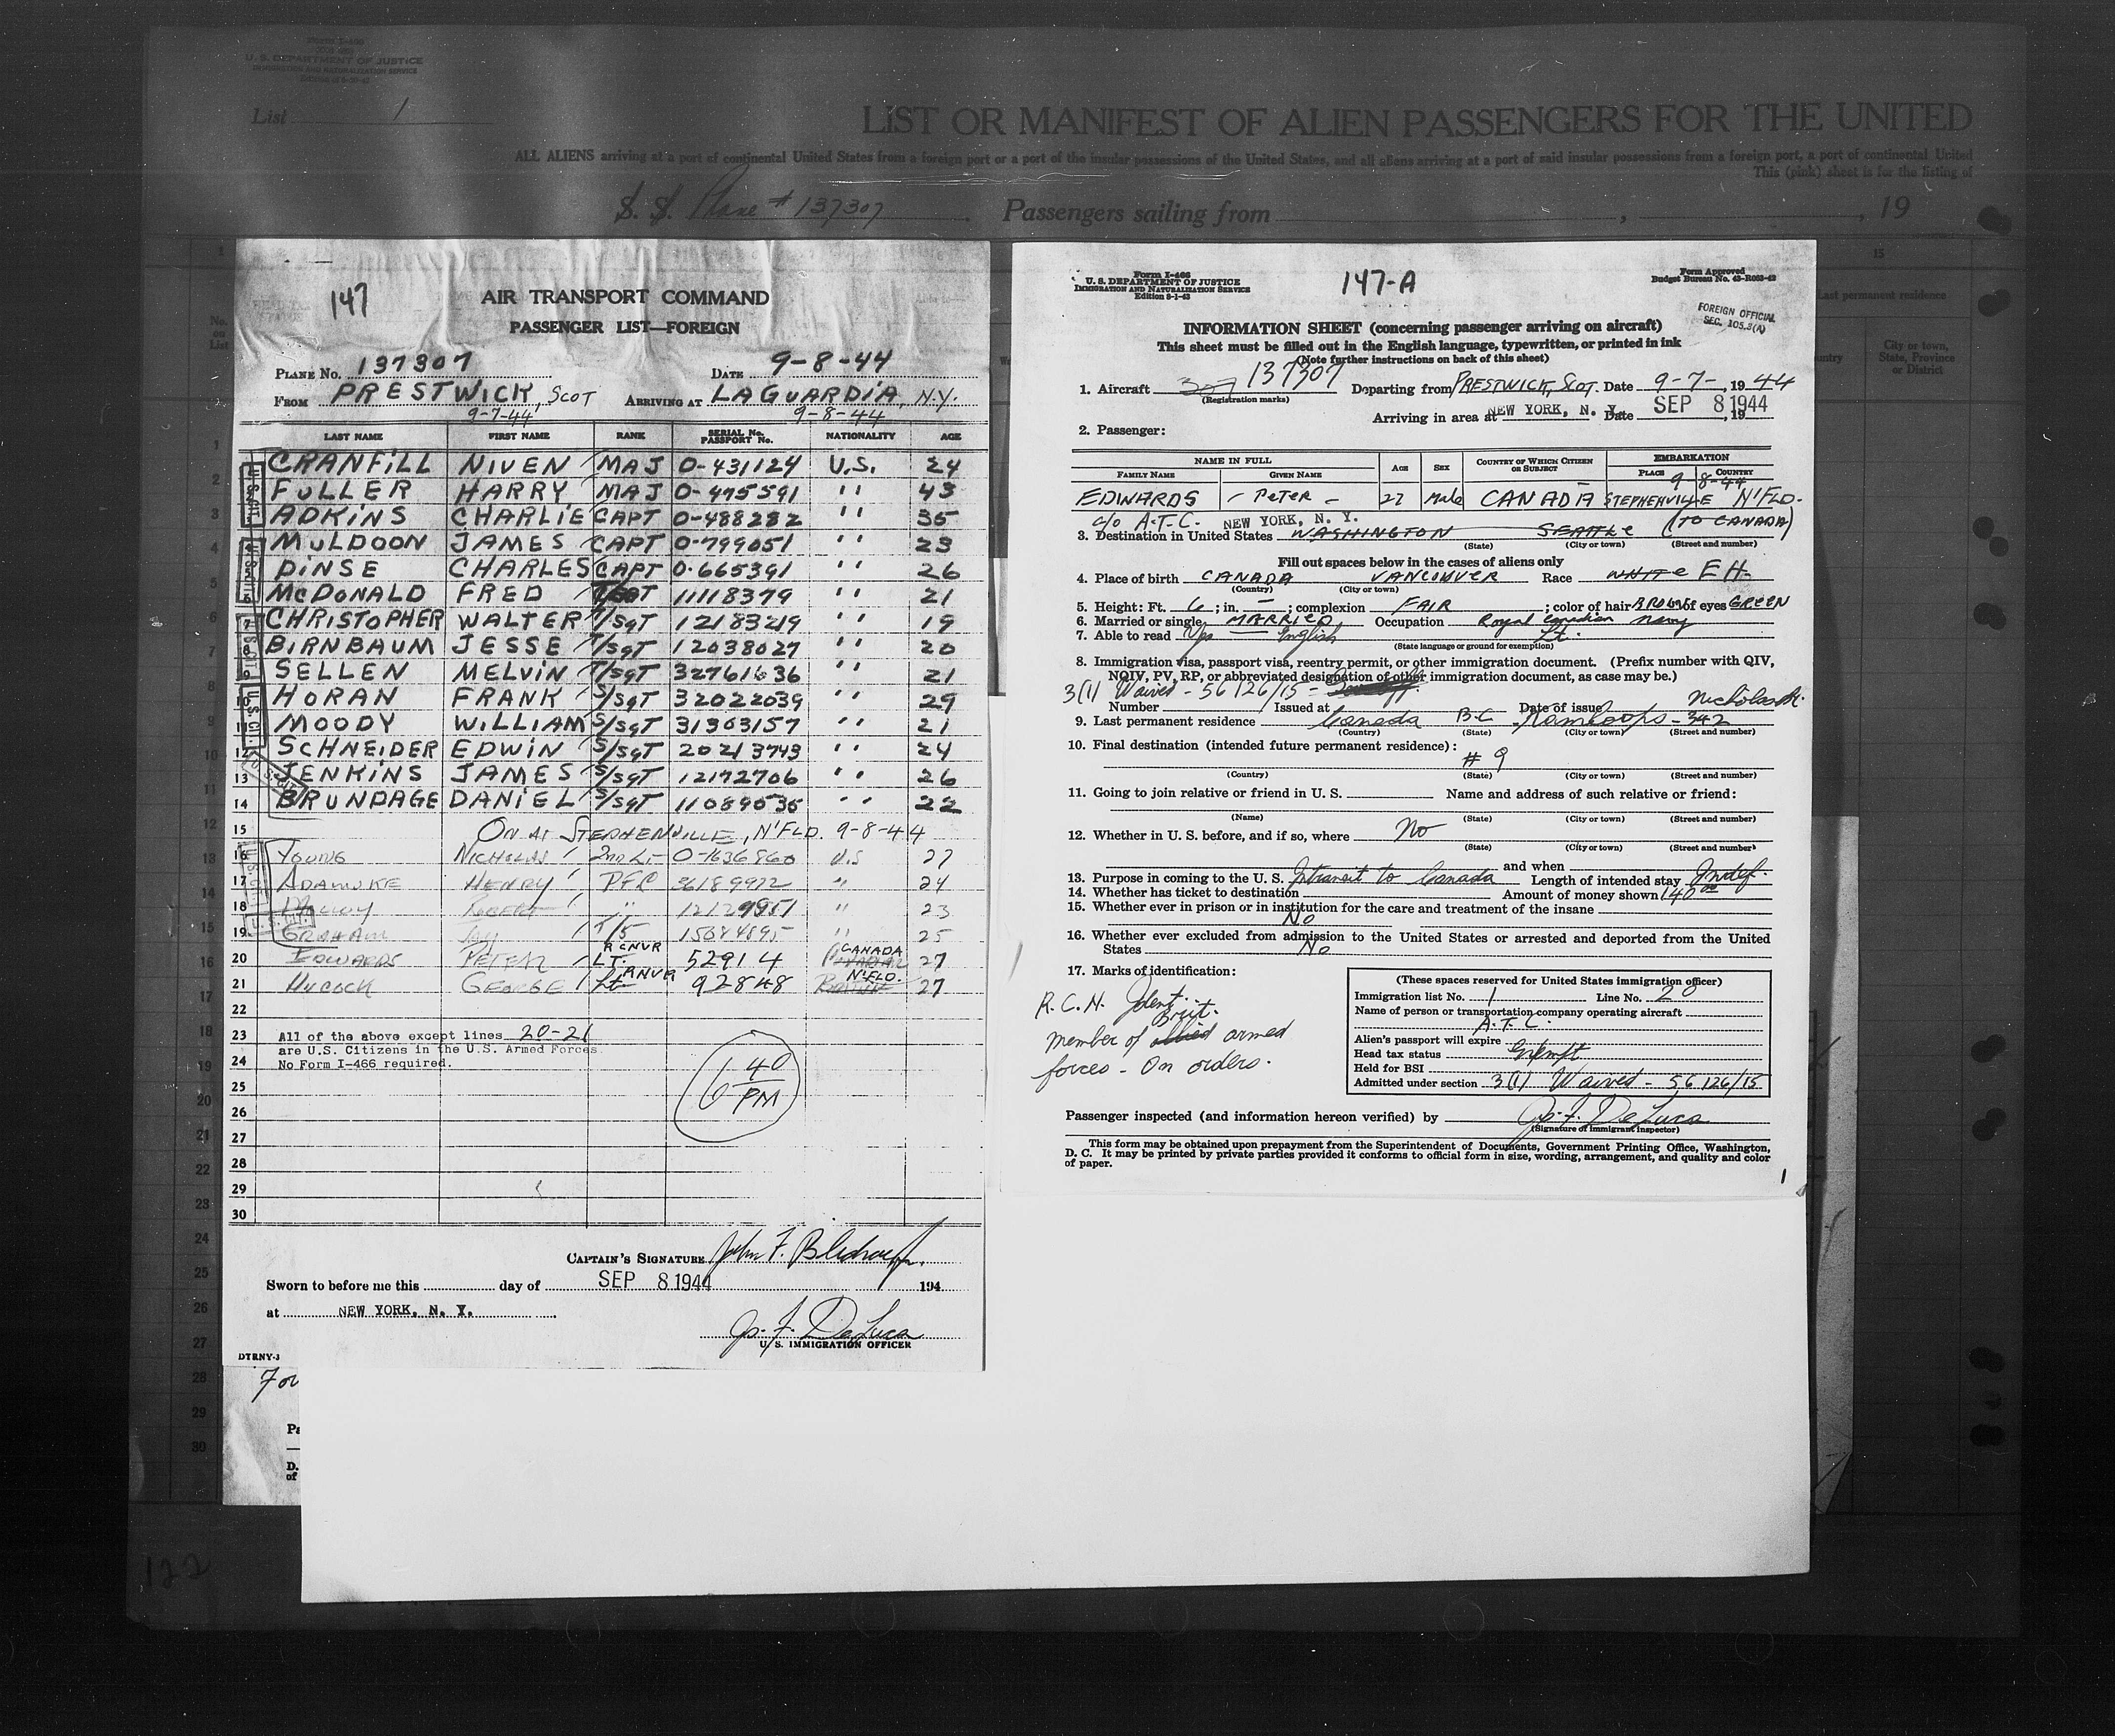 Form I-466
U. S. DEPARTMENT OF JUSTICE
IMMIGRATION AND NATURALIZATION SERVICE
List 1
LIST OR MANIFEST OF ALIEN PASSENGERS FOR THE UNITED
ALL ALIENS arriving at a port of continental United States from a foreign port or a port of the insular possessions of the United States, and all aliens arriving at a port of said insular possessions from a foreign port, a port of continental United
This (pink) sheet is for the listing of
S. S. Plane # 137307 Passengers sailing from , , 19
147
AIR TRANSPORT COMMAND
PASSENGER LIST—FOREIGN
PLANE No. 137307 DATE 9-8-44
FROM PRESTWICK, SCOT ARRIVING AT LAGUARDIA, N.Y.
9-7-44 9-8-44
LAST NAME FIRST NAME RANK SERIAL No. PASSPORT No. NATIONALITY AGE
1 CRANFILL NIVEN MAJ 0-431124 U.S. 24
2 FULLER HARRY MAJ 0-475591 '' 43
3 ADKINS CHARLIE CAPT 0-488282 '' 35
4 MULDOON JAMES CAPT 0-799051 '' 23
5 DINSE CHARLES CAPT 0-665391 '' 26
6 McDONALD FRED T/SGT 11118379 '' 21
7 CHRISTOPHER WALTER T/SGT 12183219 '' 19
8 BIRNBAUM JESSE T/SGT 12038027 '' 20
9 SELLEN MELVIN T/SGT 32761636 '' 21
10 HORAN FRANK S/SGT 32022039 '' 29
11 MOODY WILLIAM S/SGT 31303157 '' 21
12 SCHNEIDER EDWIN S/SGT 20213743 '' 24
13 JENKINS JAMES S/SGT 12172706 '' 26
14 BRUNDAGE DANIEL S/SGT 11089535 '' 22
15 ON AT STEPHENVILLE, N'FLD. 9-8-44
16 YOUNG NICHOLAS 2ND LT 0-1636860 U.S 27
17 ADAMUKE HENRY PFC 36189972 '' 24
18 ROBERT '' 12129951 '' 23
19 GRAHAM JAY T/5 15084895 '' 25
20 EDWARDS PETER LT. RCNVR 52914 CANADA 27
21 HUCOCK GEORGE Lt RNVR 92848 N'FLD. BRITISH 27
22
23 All of the above except lines 20-21
are U.S. Citizens in the U.S. Armed Forces.
24 No Form I-466 required.
25
26
27
28
29
30
6 40 PM
CAPTAIN'S SIGNATURE John F.
Sworn to before me this day of SEP 8 1944 194
at NEW YORK, N. Y.
Jos. F. DeLuca
U. S. IMMIGRATION OFFICER
DTRNY-3
For
Pa
D.
of
122
Form I-466
U. S. DEPARTMENT OF JUSTICE
IMMIGRATION AND NATURALIZATION SERVICE
Edition 8-1-43
147-A
Form Approved
Budget Bureau No. 43-R063-43
FOREIGN OFFICIAL
SEC. 105.3(A)
INFORMATION SHEET (concerning passenger arriving on aircraft)
This sheet must be filled out in the English language, typewritten, or printed in ink
(Note further instructions on back of this sheet)
1. Aircraft 307 137307 Departing from PRESTWICK, SCOT. Date 9-7-, 1944
(Registration marks)
Arriving in area at NEW YORK, N. Y. Date SEP 8 1944, 19
2. Passenger:
NAME IN FULL AGE SEX COUNTRY OF WHICH CITIZEN OR SUBJECT EMBARKATION
FAMILY NAME GIVEN NAME PLACE COUNTRY
9-8-44
EDWARDS - PETER - 27 Male CANADA STEPHENVILLE N'FLD.
c/o A.T.C. NEW YORK, N. Y. (TO CANADA)
3. Destination in United States WASHINGTON SEATTLE
(State) (City or town) (Street and number)
Fill out spaces below in the cases of aliens only
4. Place of birth CANADA VANCOUVER Race WHITE EH-
(Country) (City or town)
5. Height: Ft. 6; in. —; complexion FAIR; color of hair BROWN of eyes GREEN
6. Married or single MARRIED Occupation Royal Canadian Navy
7. Able to read Yes English Lt.
(State language or ground for exemption)
8. Immigration visa, passport visa, reentry permit, or other immigration document. (Prefix number with QIV,
NQIV, PV, RP, or abbreviated designation of other immigration document, as case may be.)
3(1) Waived - 56126/15 -
Number Issued at Date of issue
9. Last permanent residence Canada B.C Kamloops - 342 Nicholas St.
(Country) (State) (City or town) (Street and number)
10. Final destination (intended future permanent residence):
# 9
(Country) (State) (City or town) (Street and number)
11. Going to join relative or friend in U. S. Name and address of such relative or friend:
(Name) (State) (City or town) (Street and number)
12. Whether in U. S. before, and if so, where No
(State) (City or town) (Street and number)
and when
13. Purpose in coming to the U. S. Intransit to Canada Length of intended stay Indef.
14. Whether has ticket to destination Amount of money shown 140 00
15. Whether ever in prison or in institution for the care and treatment of the insane
No
16. Whether ever excluded from admission to the United States or arrested and deported from the United
States No
17. Marks of identification:
R.C.N. Ident.
Brit.
member of allied armed
forces - On orders.
(These spaces reserved for United States immigration officer)
Immigration list No. 1 Line No. 20
Name of person or transportation company operating aircraft
A.T.C.
Alien's passport will expire
Head tax status Exempt
Held for BSI
Admitted under section 3(1) Waived - 56126/15
Passenger inspected (and information hereon verified) by Jos. F. DeLuca
(Signature of immigrant inspector)
This form may be obtained upon prepayment from the Superintendent of Documents, Government Printing Office, Washington,
D. C. It may be printed by private parties provided it conforms to official form in size, wording, arrangement, and quality and color
of paper.
1
15
Last permanent residence
City or town,
State, Province
or District